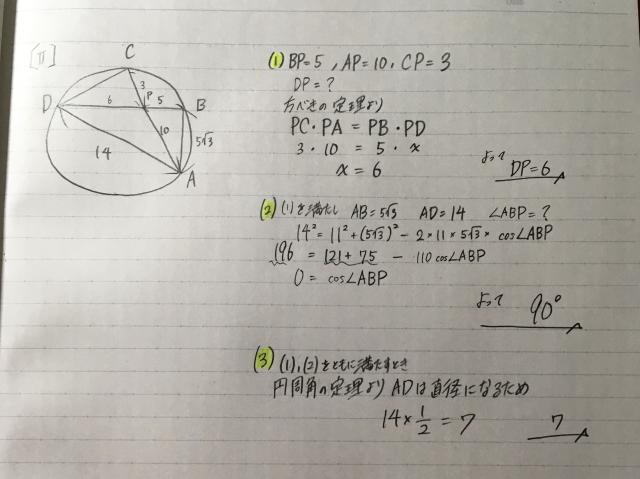 [II]
C
3
P
D
6
5
B
10
5√3
14
A
(1) BP=5, AP=10, CP=3
DP=?
方べきの定理より
PC・PA = PB・PD
3・10 = 5・x
x = 6
よって DP=6
(2) (1)を満たし AB=5√3 AD=14 ∠ABP=?
14²=11²+(5√3)²-2×11×5√3×cos∠ABP
196 = 121+75 - 110cos∠ABP
0 = cos∠ABP
よって 90°
(3) (1),(2)をともに満たすとき
円周角の定理よりADは直径になるため
14×1/2=7
7